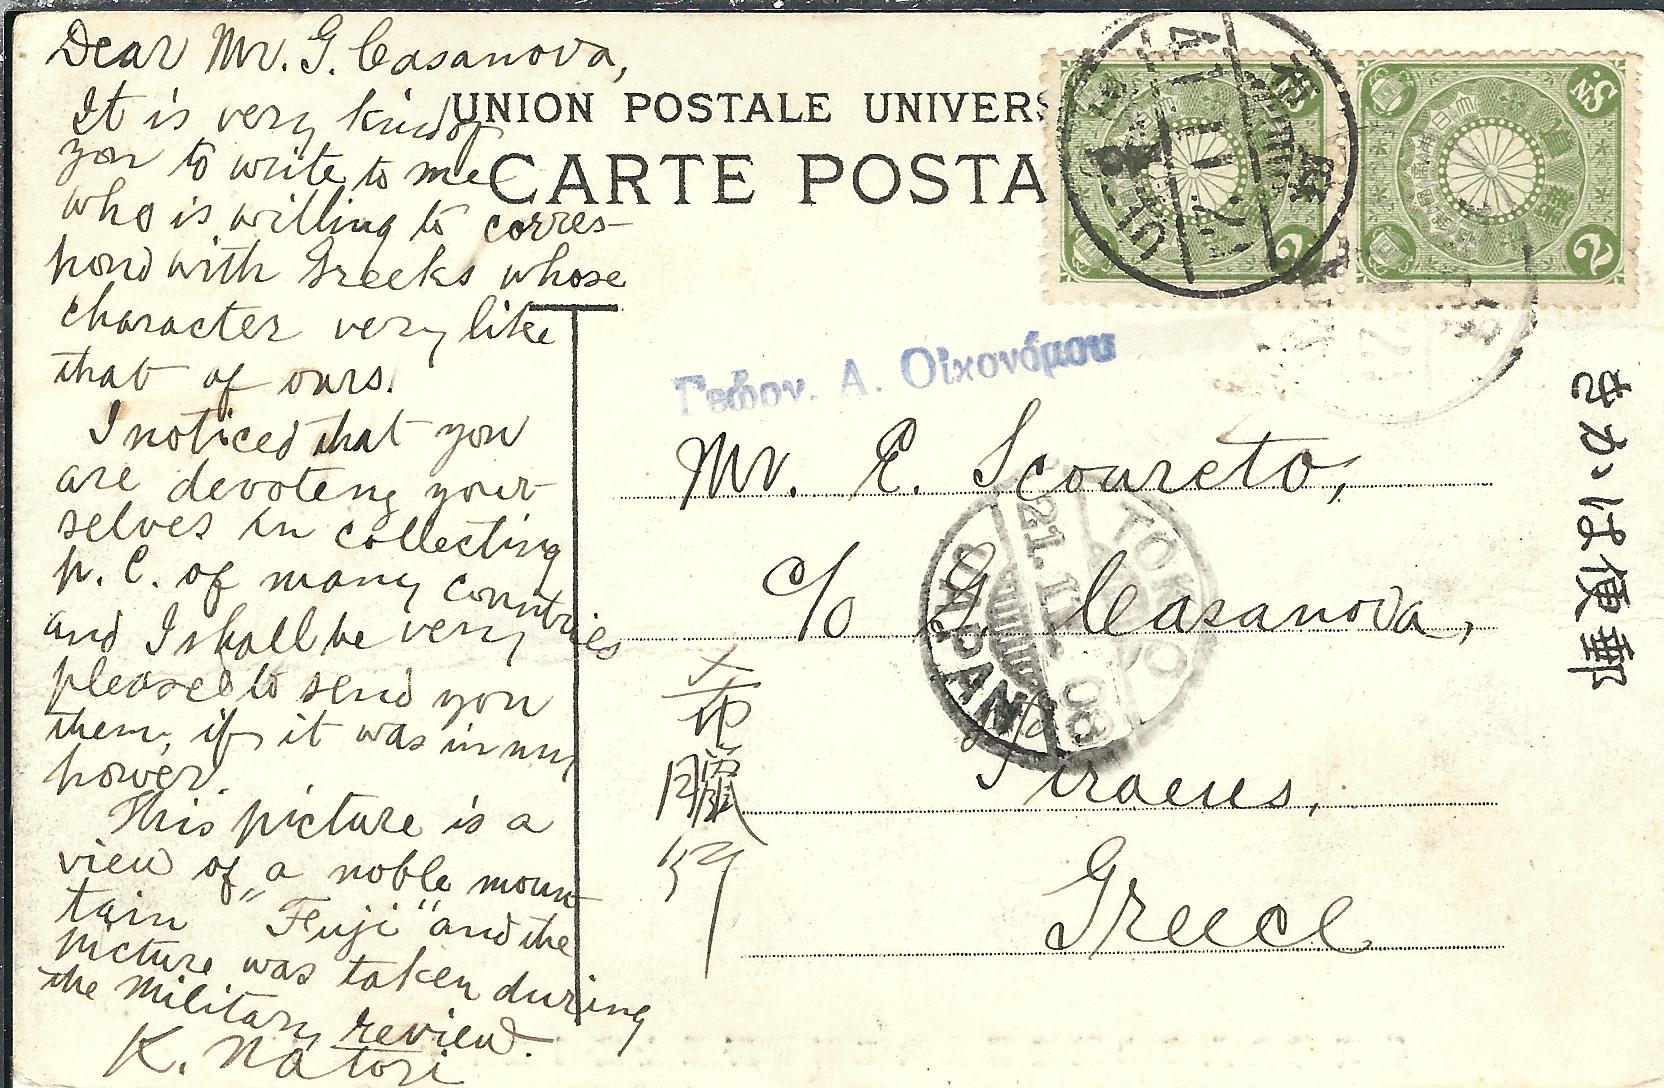 Dear Mr. G. Casanova,
It is very kind of
you to write to me
who is willing to corres-
pond with Greeks whose
character very like
that of ours.
I noticed that you
are devoteng your-
selves in collecting
p. C. of many countries
and I shall be very
pleased to send you
them, if it was in my
power.
This picture is a
view of a noble moun-
tain "Fuji" and the
picture was taken during
the military review.
K. Natori
UNION POSTALE UNIVERS
CARTE POSTA
2
Sn.
2
Γεώρν. Α. Οἰκονόμου
Mr. E. Scoureto,
c/o G. Casanova,
Piraeus,
Greece
TOKIO
21.11.08
JAPAN
希臘行
きかは便郵